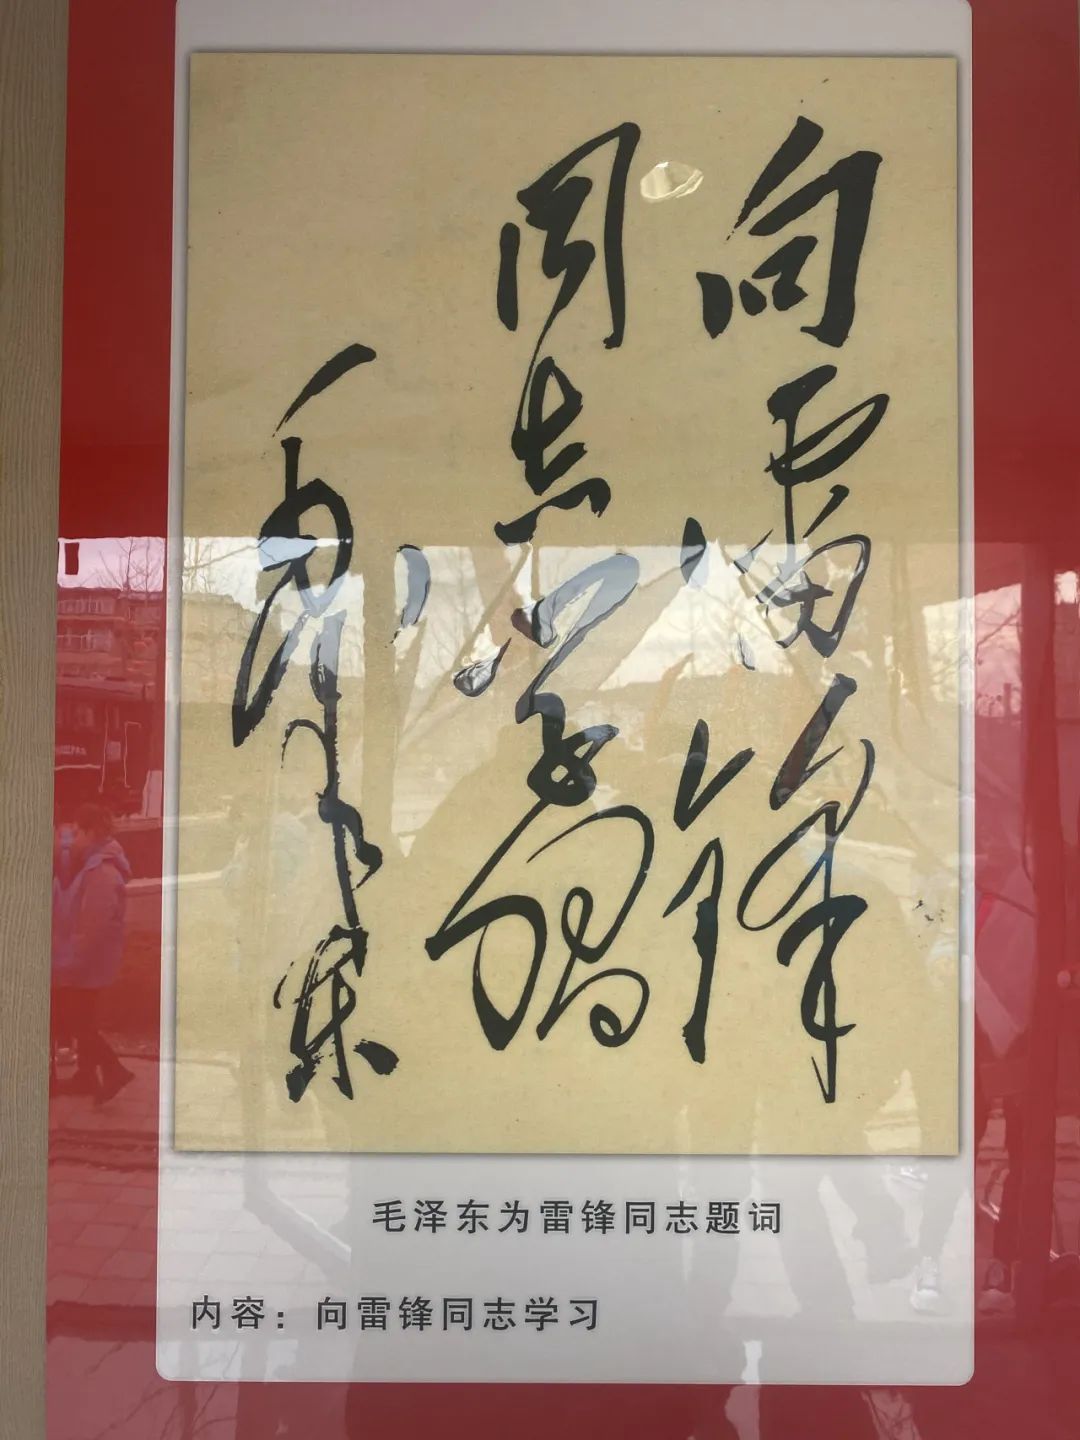 向雷锋
同志学习
毛泽东
毛泽东为雷锋同志题词
内容：向雷锋同志学习